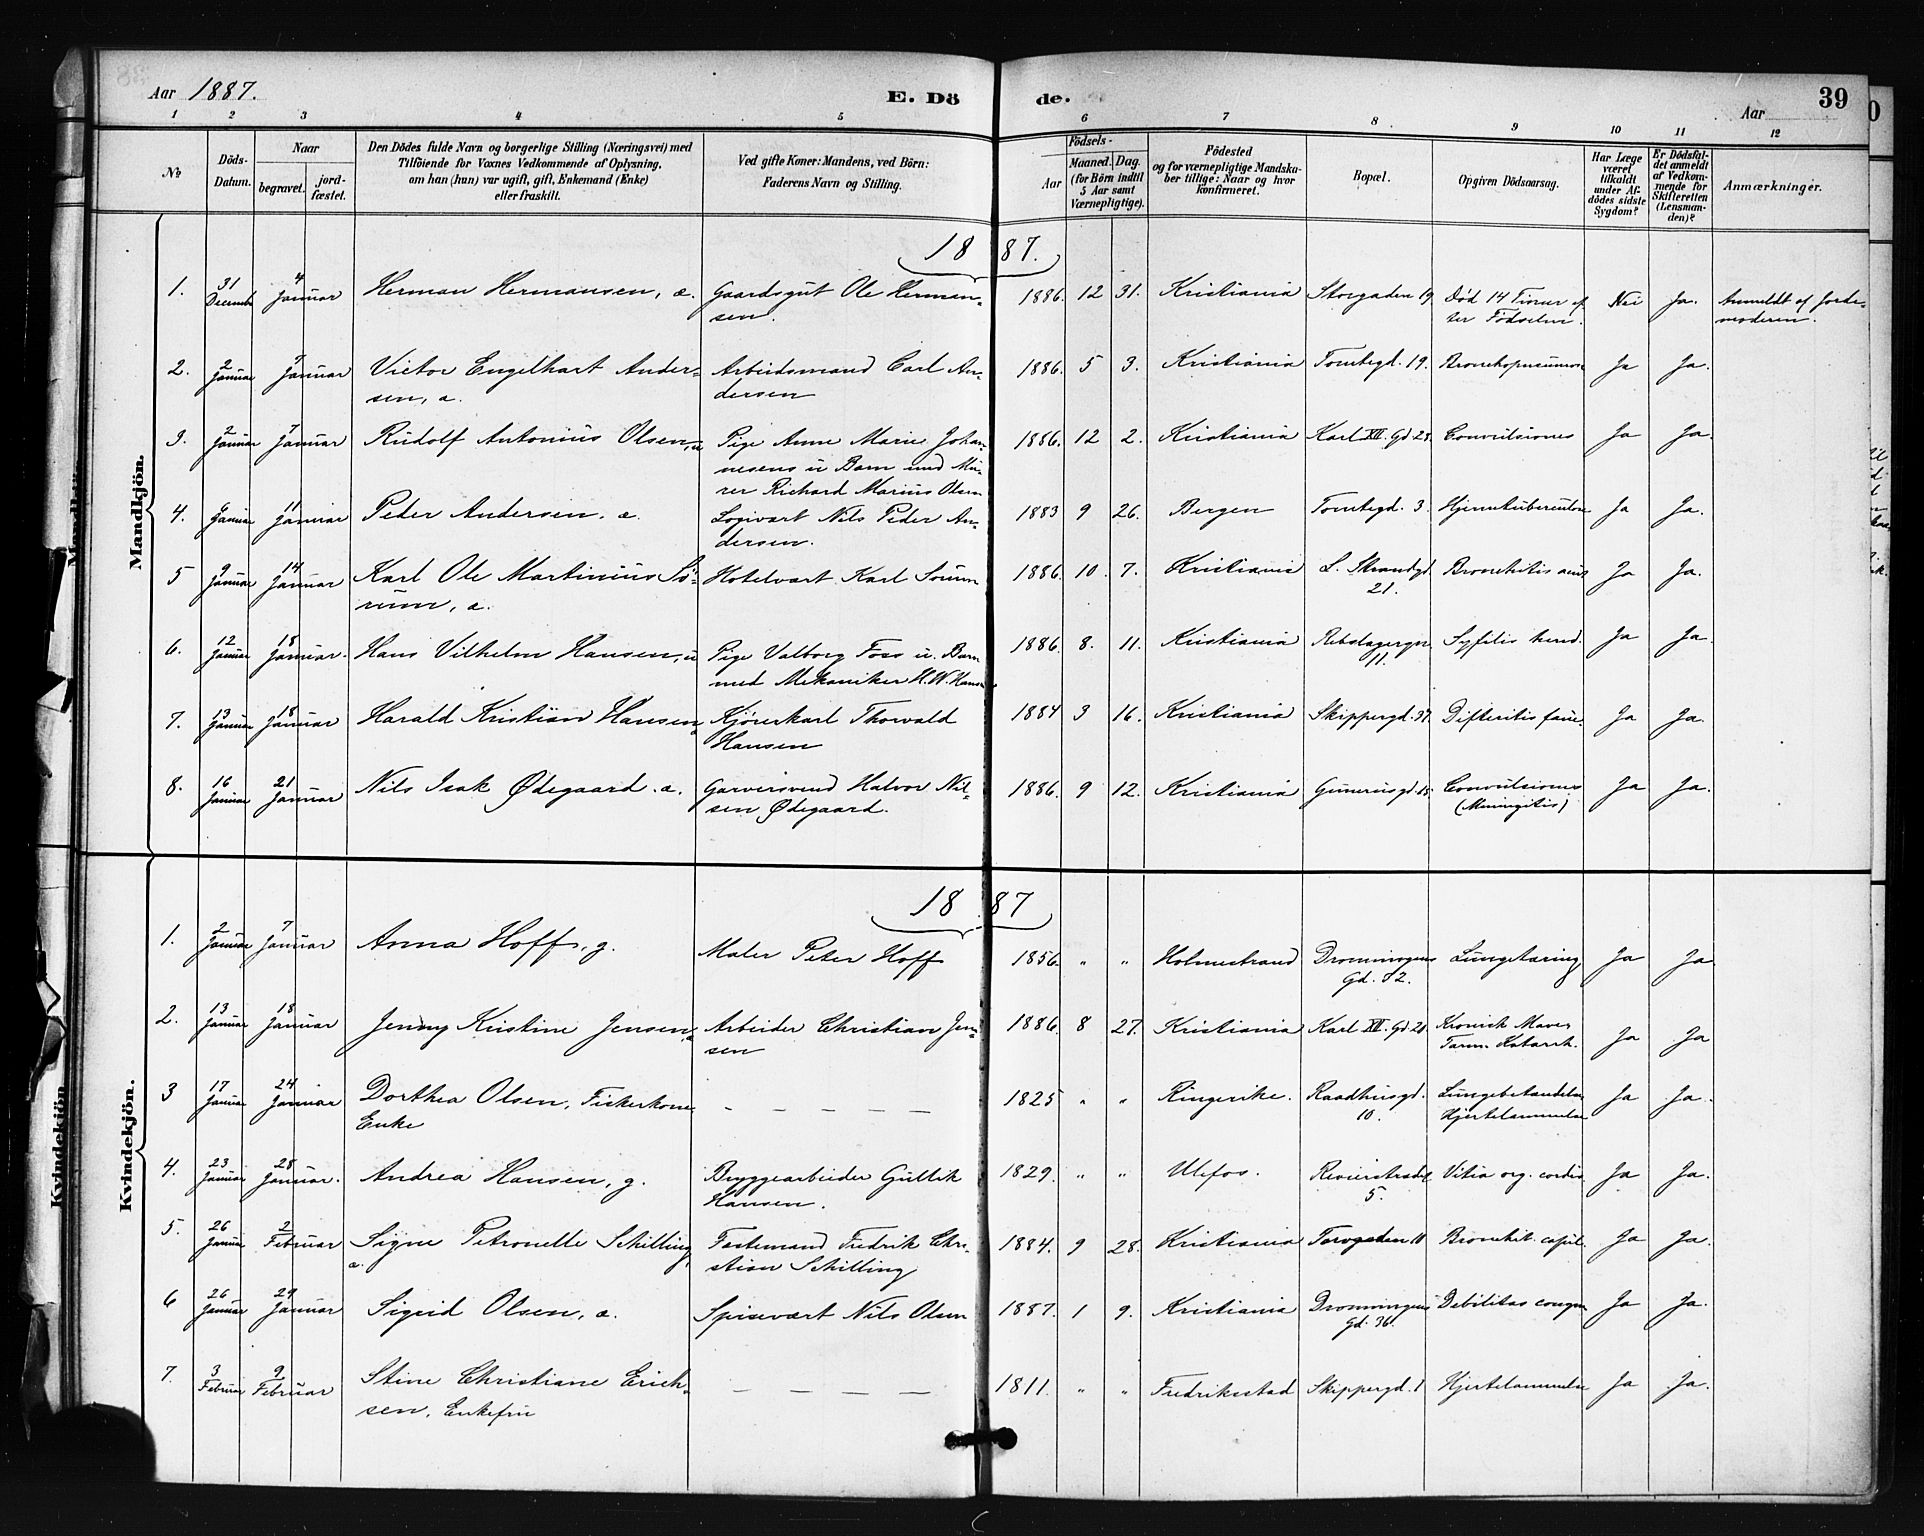 Aar 1887. E. Dö de. Aar 39
1 2 3 4 5 6 7 8 9 10 11 12
No
Döds-Datum.
Naar
begravet. jord-fæstet.
Den Dödes fulde Navn og borgerlige Stilling (Næringsvei) med
Tilföiende for Voxnes Vedkommende af Oplysning,
om han (hun) var ugift, gift, Enkemand (Enke)
eller fraskilt.
Ved gifte Koner: Mandens, ved Börn:
Faderens Navn og Stilling.
Födsels-
Aar Maaned. Dag.
(for Börn indtil
5 Aar samt
Værnepligtige).
Födested
og for værnepligtige Mandska-
ber tillige: Naar og hvor
konfirmeret.
Bopæl.
Opgiven Dödsaarsag.
Har Læge
været
tilkaldt
under Af-
dödes sidste
Sygdom?
Er Dödsfal-
det anmeldt
af Vedkom-
mende for
Skifteretten
(Lensman-
den)?
Anmærkninger.
Mandkjön.
1887.
1. 31 December 4 Januar Herman Hermansen, æ. Gaardsgut Ole Herman- 1886. 12 31. Kristiania Storgaden 19 Död 14 Timer ef- Nei Ja. Anmeldt af Jorde-
sen. ter Födselen. moderen.
2. 2 Januar 7 Januar Victor Engelhart Ander- Arbeidsmand Carl An- 1886. 5 3. Kristiania Tomtegd. 19. Ja Ja.
sen, æ. dersen
3. 2 Januar 7 Januar Rudolf Antonius Olsen, u Pige Anne Marie Johan- 1886. 12 2. Kristiania Karl XII. Gd 28. Convulsiones Ja Ja.
nesens u Barn med Mu-
rer Richard Marius Olsen
4. Januar 11 Januar Peder Andersen. æ. Logivært Nils Peder An- 1883 9 26. Bergen Tomtegd. 3. Hjernetuberculose Ja Ja.
dersen.
5 9 Januar 14 Januar Karl Ole Martinius Sö- Hotelvært Karl Sörum 1886. 10. 7. Kristiania L. Strandgd. Bronchitis acut Ja Ja.
rum, æ. 21.
6. 12 Januar 18 Januar. Hans Vilhelm Hansen, u Pige Valborg Foss u. Barn 1886. 8. 11. Kristiania Rebslagergn. Syfilis hered. Ja Ja.
med Mekaniker H. W. Hansen 11.
7. 13 Januar 18 Januar Harald Kristian Hansen Kjörerkarl Thorvald 1884 3 16. Kristiania Skippergd. 37. Difteritis fauc. Ja Ja.
Hansen
8. 16 Januar 21 Januar Nils Isak Ødegaard. æ. Garversvend Halvor Nil- 1886. 9 12. Kristiania Gunerusgd. 15 Convulsiones Ja Ja.
sen Ødegaard. (Meningitis)
Kvindekjön.
1887
1. 2 Januar 7 Januar Anna Hoff, g. Maler Peter Hoff 1856. " " Holmestrand Dronningens Lungetæring Ja Ja.
Gd. 32.
2. 13 Januar 18 Januar Jenny Kristine Jensen, æ Arbeider Christian Jen- 1886. 8 27. Kristiania Karl XII. Gd 28 Kronisk Mave Ja Ja
sen Tarm. Katarrh.
3 17 Januar 24 Januar Dorthea Olsen, Fiskerkone — — — — — 1825 " " Ringerike. Raadhusgd. Lungebetændelse Ja Ja.
Enke 10. Hjertelammelse
4. 23 Januar 28 Januar. Andrea Hansen, g. Bryggearbeider Gullik 1829. " " Ulefos. Revierstrædet Vitia org. cordis. Ja Ja.
Hansen. 5.
5. 26 Januar 2 Februar Signe Petronelle Schilling, Fortemand Fredrik Chri- 1884. 9 28. Kristiania Torvgaden 11 Bronchit. capil. Ja Ja.
æ. stian Schilling
6 26 Januar 29 Januar Sigrid Olsen, æ. Spisevært Nils Olsen 1887. 1 9. Kristiania Dronningens Debilitas congen Ja Ja.
Gd. 36.
7. 3 Februar 9 Februar Stine Christiane Erich- — — — — 1811. " " Fredriksstad Skippergd. 1 Hjertelammelse Ja Ja.
sen. Enkefru